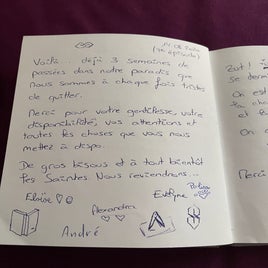 14.08.2020
(1er épisode)
Voilà... déjà 3 semaines de
passées dans notre paradis que
nous sommes à chaque fois tristes
de quitter.
Merci pour votre gentillesse, votre
disponibilité, vos attentions et
toutes les choses que vous nous
mettez à dispo.
De gros bisous et à tout bientôt
les Saintes Nous reviendrons...
Eloïse
Evelyne
Alexandra
André
Zut !
se derni
On est
la cha
et
On
Merci